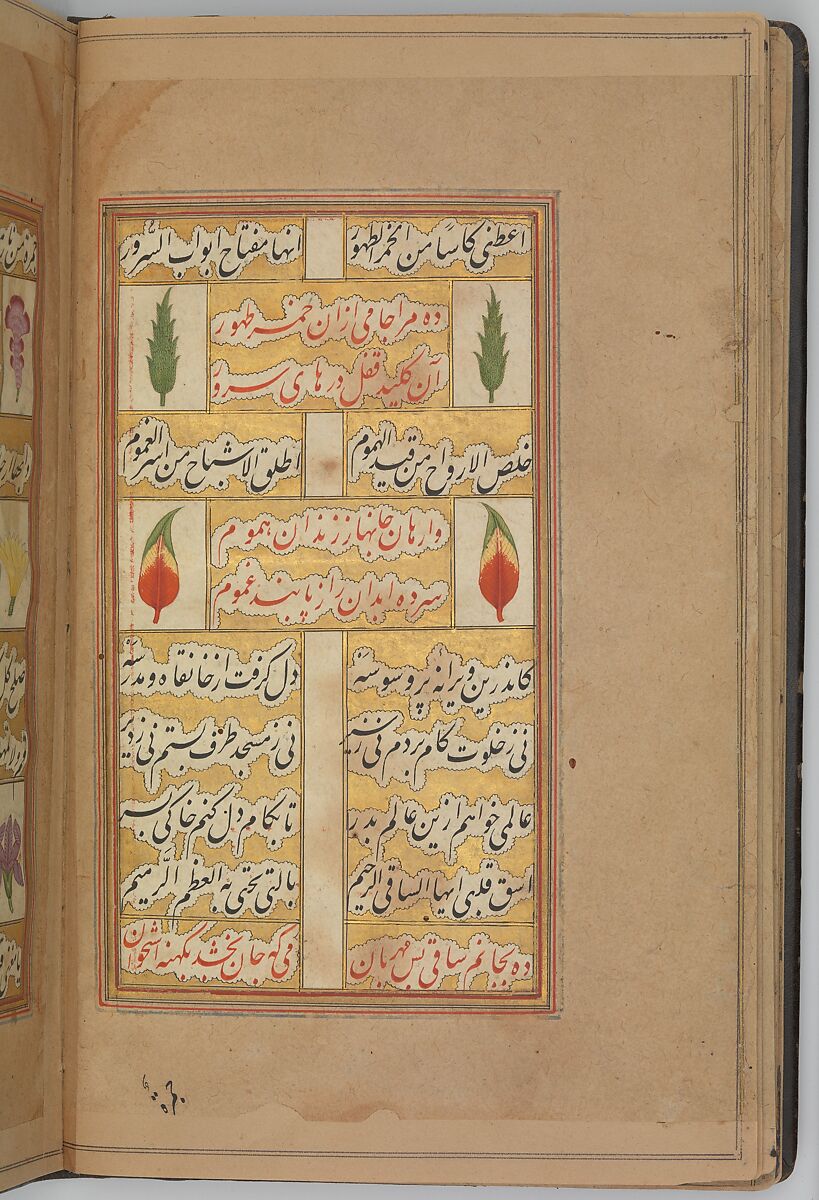 اعطنی کاسا من الخمر الطهور انها مفتاح ابواب السرور
ده مرا جامی ازان خمر طهور
آن کلید قفل درهای سرور
خلص الارواح من قید الهموم اطلق الاشباح من اسر الغموم
وارهان جانها ز زندان هموم
سر ده ابدان را ز پابند غموم
کاندرین ویرانه پر وسوسه دل گرفت از خانقاه و مدرسه
نی ز خلوت کام بردم نی ز سیر نی ز مسجد طرف بستم نی ز دیر
عالمی خواهم ازین عالم بدر تا بکام دل کنم خاکی بسر
اسق قلبی ایها الساقی الرحیم بالتی یحتی به العظم الرمیم
ده بجانم ساقی بس مهربان می که جان بخشد بکهنه استخوان